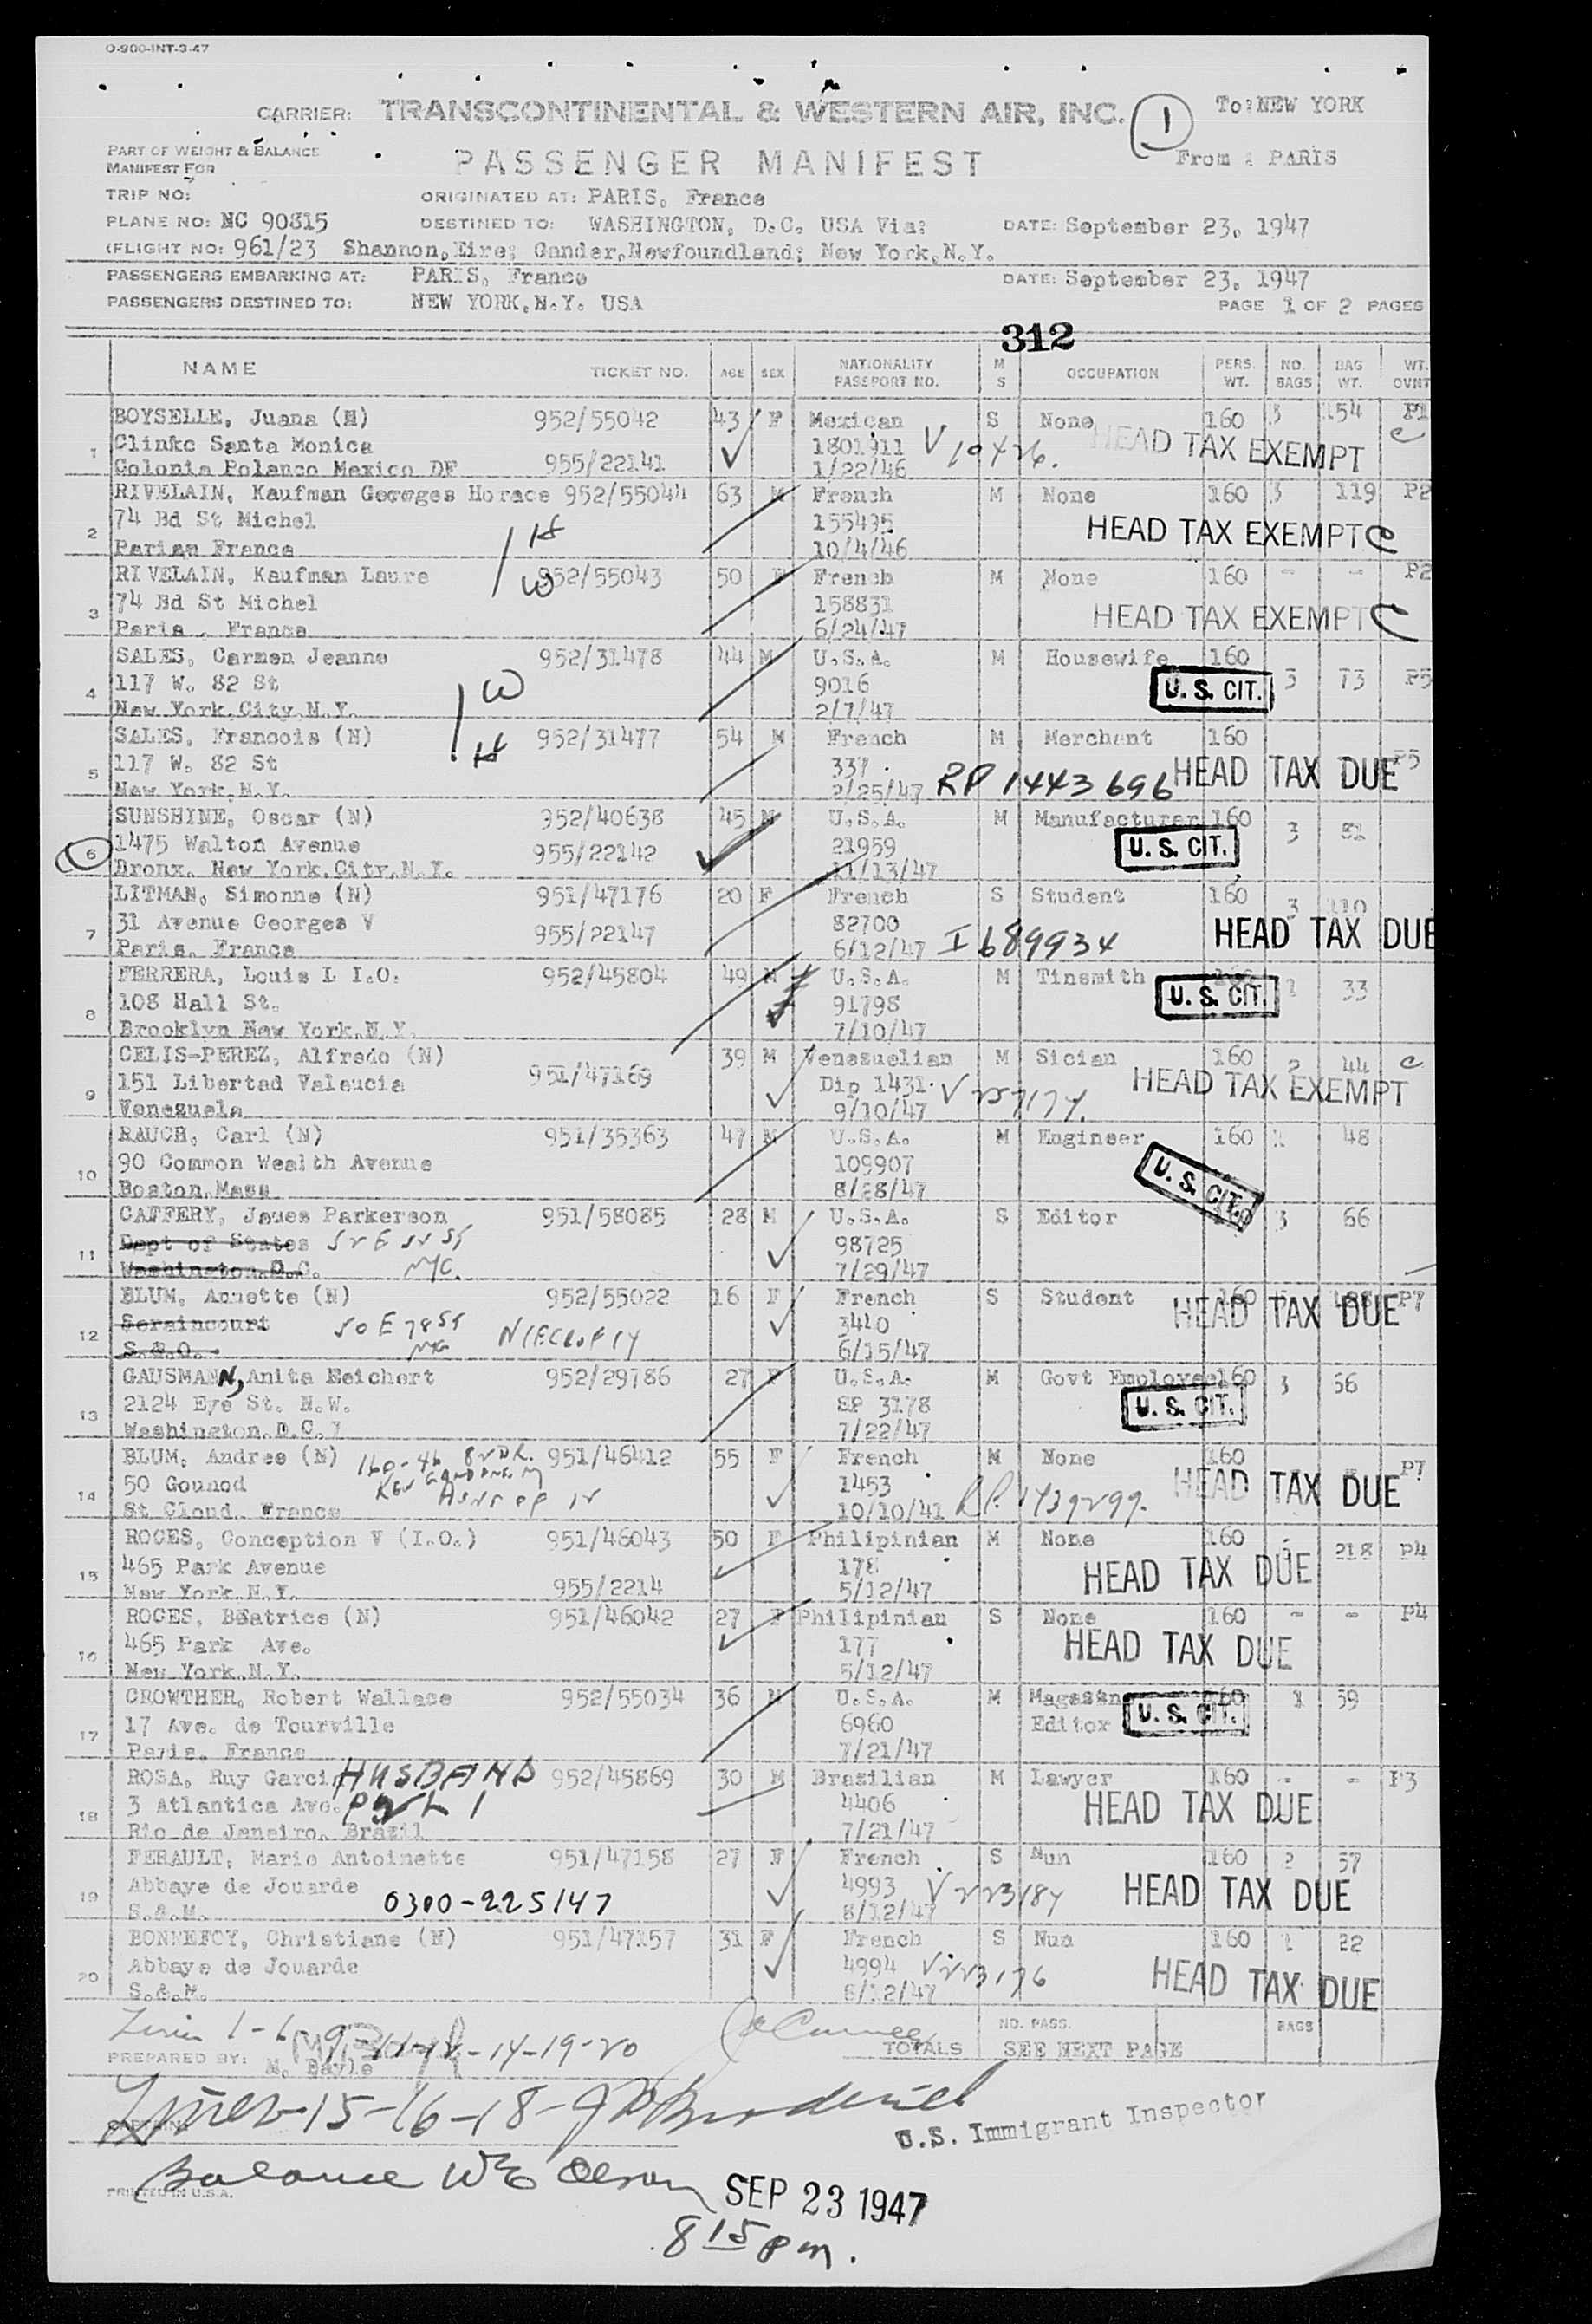 O-900-INT-3-47
CARRIER: TRANSCONTINENTAL & WESTERN AIR, INC. 1 To: NEW YORK
PART OF WEIGHT & BALANCE
MANIFEST FOR
PASSENGER MANIFEST From : PARIS
TRIP NO: ORIGINATED AT: PARIS, France
PLANE NO: NC 90815 DESTINED TO: WASHINGTON, D.C. USA Via: DATE: September 23, 1947
FLIGHT NO: 961/23 Shannon, Eire; Gander, Newfoundland; New York, N.Y.
PASSENGERS EMBARKING AT: PARIS, France DATE: September 23, 1947
PASSENGERS DESTINED TO: NEW YORK, N.Y. USA PAGE 1 OF 2 PAGES
312
NAME TICKET NO. AGE SEX NATIONALITY PASSPORT NO. M S OCCUPATION PERS. WT. NO. BAGS BAG WT. WT. OVNT
BOYSELLE, Juana (N) 952/55042 43 F Mexican S None 160 3 154 P1
1 Clinkc Santa Monica 1801911 V 10426. HEAD TAX EXEMPT C
Colonia Polanco Mexico DF 955/22141 1/22/46
RIVELAIN, Kaufman Georges Horace 952/55044 63 M French M None 160 3 119 P2
2 74 Bd St Michel H 155495 HEAD TAX EXEMPT C
Parism France 10/4/46
RIVELAIN, Kaufman Laure W 952/55043 50 F French M None 160 - - P2
3 74 Bd St Michel 158831 HEAD TAX EXEMPT C
Paris, France 6/24/47
SALES, Carmen Jeanne 952/31478 44 M U.S.A. M Housewife 160
4 117 W. 82 St W 9016 U.S. CIT. 3 73 P5
New York City N.Y. 2/7/47
SALES, Francois (N) H 952/31477 54 M French M Merchant 160
5 117 W. 82 St 337 HEAD TAX DUE P5
New York, N.Y. 2/25/47 RP 1443696
SUNSHINE, Oscar (N) 952/40638 45 M U.S.A. M Manufacturer 160
6 1475 Walton Avenue 955/22142 21959 U.S. CIT. 3 81
Bronx, New York City, N.Y. 11/13/47
LITMAN, Simonne (N) 951/47176 20 F French S Student 160 3 110
7 31 Avenue Georges V 955/22147 82700 HEAD TAX DUE
Paris, France 6/12/47 I 689934
FERRERA, Louis L I.O. 952/45804 49 M U.S.A. M Tinsmith
8 108 Hall St. 91798 U.S. CIT. 33
Brooklyn New York, N.Y. 7/10/47
CELIS-PEREZ, Alfredo (N) 951/47169 39 M Venezuelian M Sician 160 2 44 C
9 151 Libertad Valeucia Dip 1431 HEAD TAX EXEMPT
Venezuela 9/10/47
RAUCH, Carl (N) 951/35363 47 M U.S.A. M Engineer 160 48
10 90 Common Wealth Avenue 109907 U.S. CIT.
Boston, Mass 8/28/47
CAFFERY, Jaues Parkerson 951/58085 28 M U.S.A. S Editor 3 66
11 Dept of States 98725
Washington, D.C. NYC. 7/29/47
BLUM, Annette (N) 952/55022 16 F French S Student 160 P7
12 Seraincourt 50 E 78 ST NIECE OF 14 3410 HEAD TAX DUE
S.&.O. 6/15/47
GAUSMANN, Anita Eeichert 952/29786 27 F U.S.A. M Govt Employee 160 3 56
13 2124 Eye St. N.W. SP 3178 U.S. CIT.
Washington, D.C. 7 7/22/47
BLUM, Andree (N) 951/46412 55 F French M None 160 P7
14 50 Gounod AUNT OF 12 1453 HEAD TAX DUE
St Cloud, France 10/10/41 RP. 1439299.
ROCES, Conception V (I.O.) 951/46043 50 F Philipinian M None 160 218 P4
15 465 Park Avenue 178 HEAD TAX DUE
New York, N.Y. 955/2214 5/12/47
ROCES, BEatrice (N) 951/46042 27 F Philipinian S None 160 - - P4
16 465 Park Ave. 177 HEAD TAX DUE
New York, N.Y. 5/12/47
CROWTHER, Robert Wallace 952/55034 36 M U.S.A. M Magasin 1 59
17 17 Ave. de Tourville 6960 Editor U.S. CIT.
Paris, France 7/21/47
ROSA, Ruy Garci HUSBAND 952/45869 30 M Brazilian M Lawyer 160 - - P3
18 3 Atlantica Ave. 4406 HEAD TAX DUE
Rio de Janeiro, Brazil 7/21/47
FERAULT, Marie Antoinette 951/47158 27 F French S Nun 160 2 57
19 Abbaye de Jouarde 4993 V 223184 HEAD TAX DUE
S.&.M. 0300-225147 8/12/47
BONNEFOY, Christiane (N) 951/47157 31 F French S Nun 160 22
20 Abbaye de Jouarde 4994 V 223176 HEAD TAX DUE
S.&.M. 8/12/47
NO. PASS. BAGS
TOTALS SEE NEXT PAGE
PREPARED BY: M. Bayle
Lines 15-16-18-
U.S. Immigrant Inspector
Balance
PRINTED IN U.S.A.
SEP 23 1947
8 15 pm.